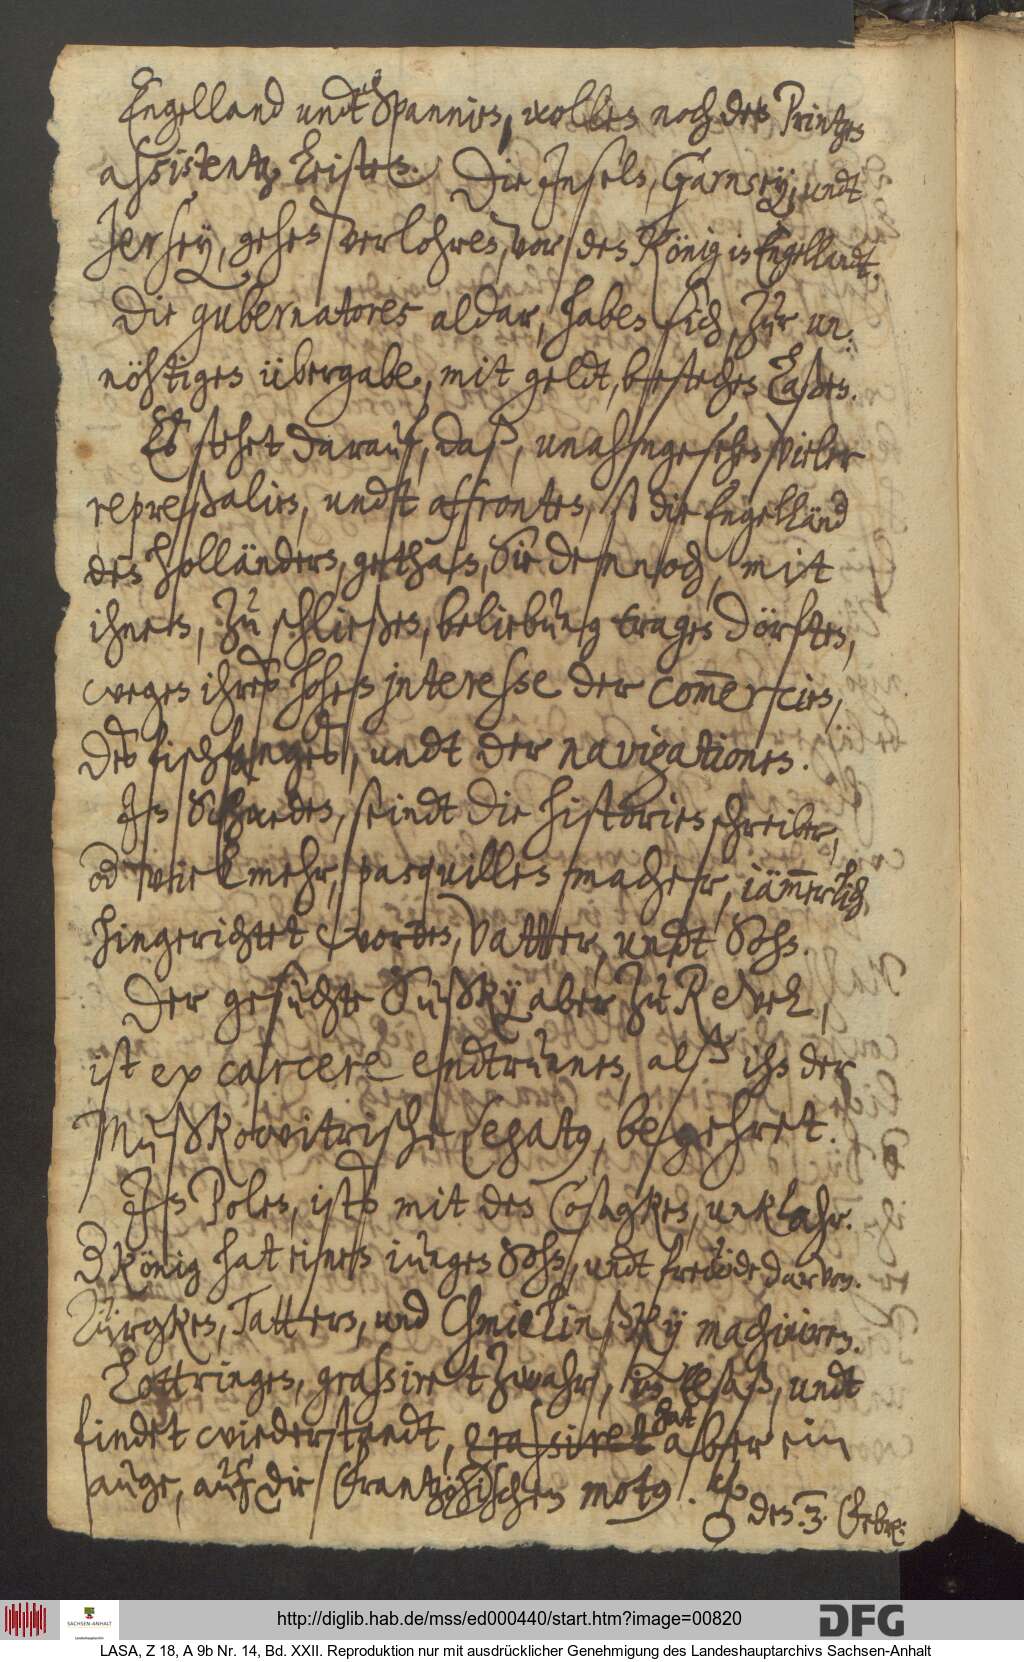 Engelland undt Spannien, wollen noch des Printzen
assistentz leisten. Die Inseln, Garnsey, undt
Jersey, gehen verlohren, vor den König in Engellandt.
Die gubernatores aldar, haben sich, zur un-
nöhtigen übergabe, mit geldt, bestechen laßen.
Es stehet darauf, daß, unahngesehen vieler
repreßalien, undt affronten, so die Engelländ
den Holländern, gethan, Sie dennoch, mit
ihnen, zu schließen, beliebung tragen dörften,
wegen ihres hohen interesse der com̅ercien,
des fischfanges, undt der navigationen.
In Schweden, seindt die historien schreiber,
od vielmehr, pasquillen macher, iäm̅erlich
hingerichtet worden, Vatter, undt Sohn.
Der gesuchte Sußky aber zu Revel,
ist ex carcere endtrunnen, alß ihn der
Mußkowitrische Legatus, begehret.
In Polen, ists mit den Cosagken, unklahr.
D König hat einen iungen Sohn, undt freüde darvon.
Türgken, Tattern, und Chmielinßky machiniren.
Lottringen, grassiret zwahr, im Elsaß, undt
findet wiederstandt, grassiret hat aber ein
auge, auf die Frantzösischen motus.
den .3. Febr:
http://diglib.hab.de/mss/ed000440/start.htm?image=00820
DFG
SACHSEN-ANHALT
Landeshauptarchiv
LASA, Z 18, A 9b Nr. 14, Bd. XXII. Reproduktion nur mit ausdrücklicher Genehmigung des Landeshauptarchivs Sachsen-Anhalt